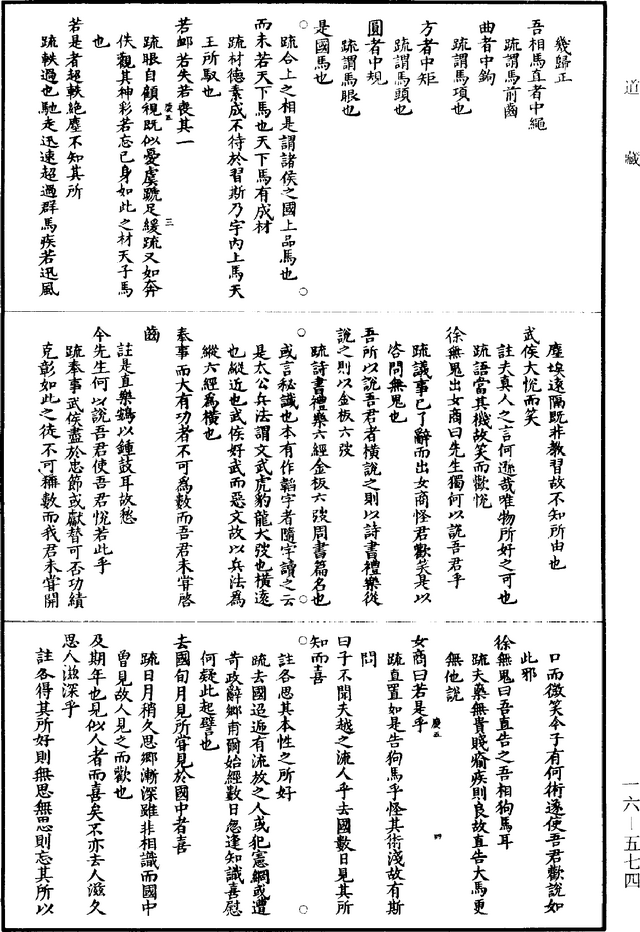 道藏
幾歸正
吾相馬直者中繩
疏謂馬前齒
曲者中鉤
疏謂馬項也
方者中矩
疏謂馬頭也
圓者中規
疏謂馬眼也
是國馬也
疏合上之相是謂諸侯之國上品馬也
而未若天下馬也天下馬有成材
疏材德素成不待於習斯乃宇內上馬天
王所馭也
若䘏若失若喪其一
疏眼自顧視既似憂虞蹏足緩疏又如奔
佚觀其神彩若忘己身如此之材天子馬
也
若是者超軼絕塵不知其所
疏軼過也馳走迅速超過群馬疾若迅風
塵埃遠隔既非教習故不知所由也
武侯大悅而笑
註夫真人之言何遜哉唯物所好之可也
疏語當其機故笑而歡悅
徐無鬼出女商曰先生獨何以說吾君乎
疏議事已了辭而出女商怪君歡笑是以
咨問無鬼也
吾所以說吾君者橫說之則以詩書禮樂從
說之則以金板六弢
疏詩書禮樂六經金板六弢周書篇名也
或言祕讖也本有作韜字者隨字讀之云
是太公兵法謂文武虎豹龍犬弢也橫遠
也縱近也武侯好武而惡文故以兵法為
縱六經為橫也
奉事而大有功者不可為數而吾君未嘗啓
齒
註是直樂鷃以鍾鼓耳故愁
今先生何以說吾君使吾君悅若此乎
疏奉事武侯盡於忠節或獻替可否功績
克彰如此之徒不可稱數而我君未嘗開
口而微笑今子有何術遂使吾君歡說如
此邪
徐無鬼曰吾直告之吾相狗馬耳
疏夫藥無貴賤瘉疾則良故直告犬馬更
無他說
女商曰若是乎
疏直置如是告狗馬乎怪其術淺故有斯
問
曰子不聞夫越之流人乎去國數日見其所
知而喜
註各思其本性之所好
疏去國迢遞有流放之人或犯憲網或遭
苛政辭鄉甫爾始經數日忽逢知識喜慰
何疑此起譬也
去國旬月見所嘗見於國中者喜
疏日月稍久思鄉漸深雖非相識而國中
曾見故人見之而歡也
及期年也見似人者而喜矣不亦去人滋久
思人滋深乎
註各得其所好則無思無思則忘其所以
慶五
三
慶五
四
一六—五七四